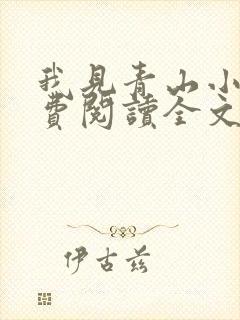 我見青山小
費閱讀全文
伊古兹